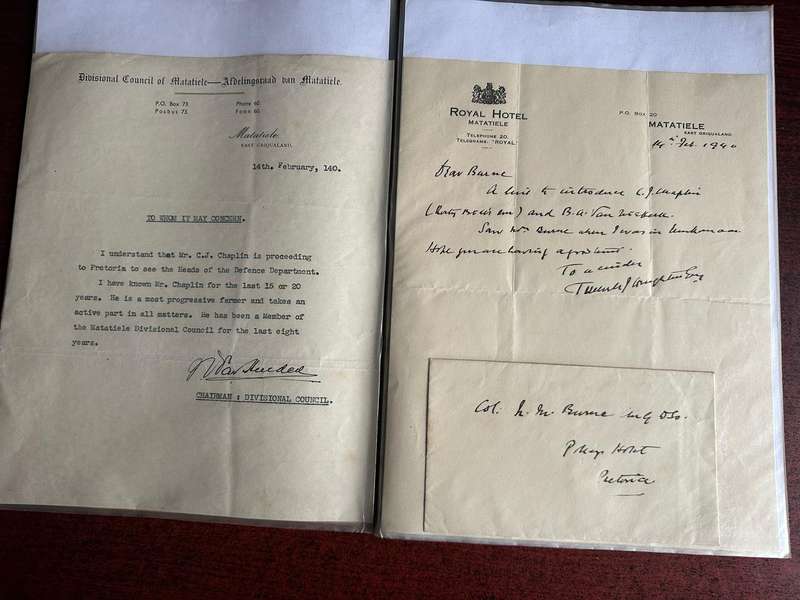 Divisional Council of Matatiele—Afdelingsraad van Matatiele.
P.O. Box 73. Phone 60.
Posbus 73. Foon 60.
Matatiele,
EAST GRIQUALAND.
14th. February, 140.
TO WHOM IT MAY CONCERN.
I understand that Mr. C.J. Chaplin is proceeding
to Pretoria to see the Heads of the Defence Department.
I have known Mr. Chaplin for the last 15 or 20
years. He is a most progressive farmer and takes an
active part in all matters. He has been a Member of
the Matatiele Divisional Council for the last eight
years.
CHAIRMAN : DIVISIONAL COUNCIL.
ROYAL HOTEL
MATATIELE
TELEPHONE 20.
TELEGRAMS, "ROYAL"
P.O. BOX 20
MATATIELE
EAST GRIQUALAND
14th Feb. 1940
Dear Burne
A line to introduce C.J. Chaplin
and B.
Saw Mrs Burne when I was in
Hope you are having a
Col. N. M. Burne M.C DSO.
Hotel
Pretoria